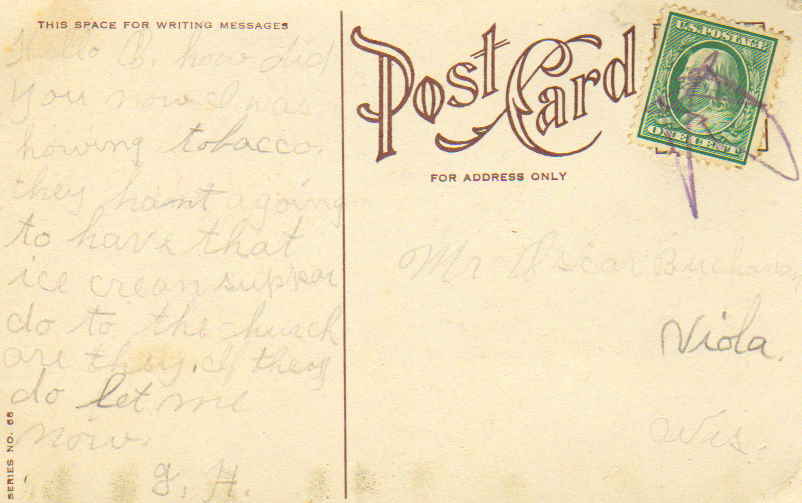 THIS SPACE FOR WRITING MESSAGES
Post Card
FOR ADDRESS ONLY
U.S. POSTAGE
ONE CENT
Hello O. how did
you now I was
howing tobacco.
they hamt agoing
to have that
ice crean suppor
do to the church
are they. if they
do let me
now.
G. H.
Mr Oscar Buchanan
Viola.
Wis.
SERIES NO. 66